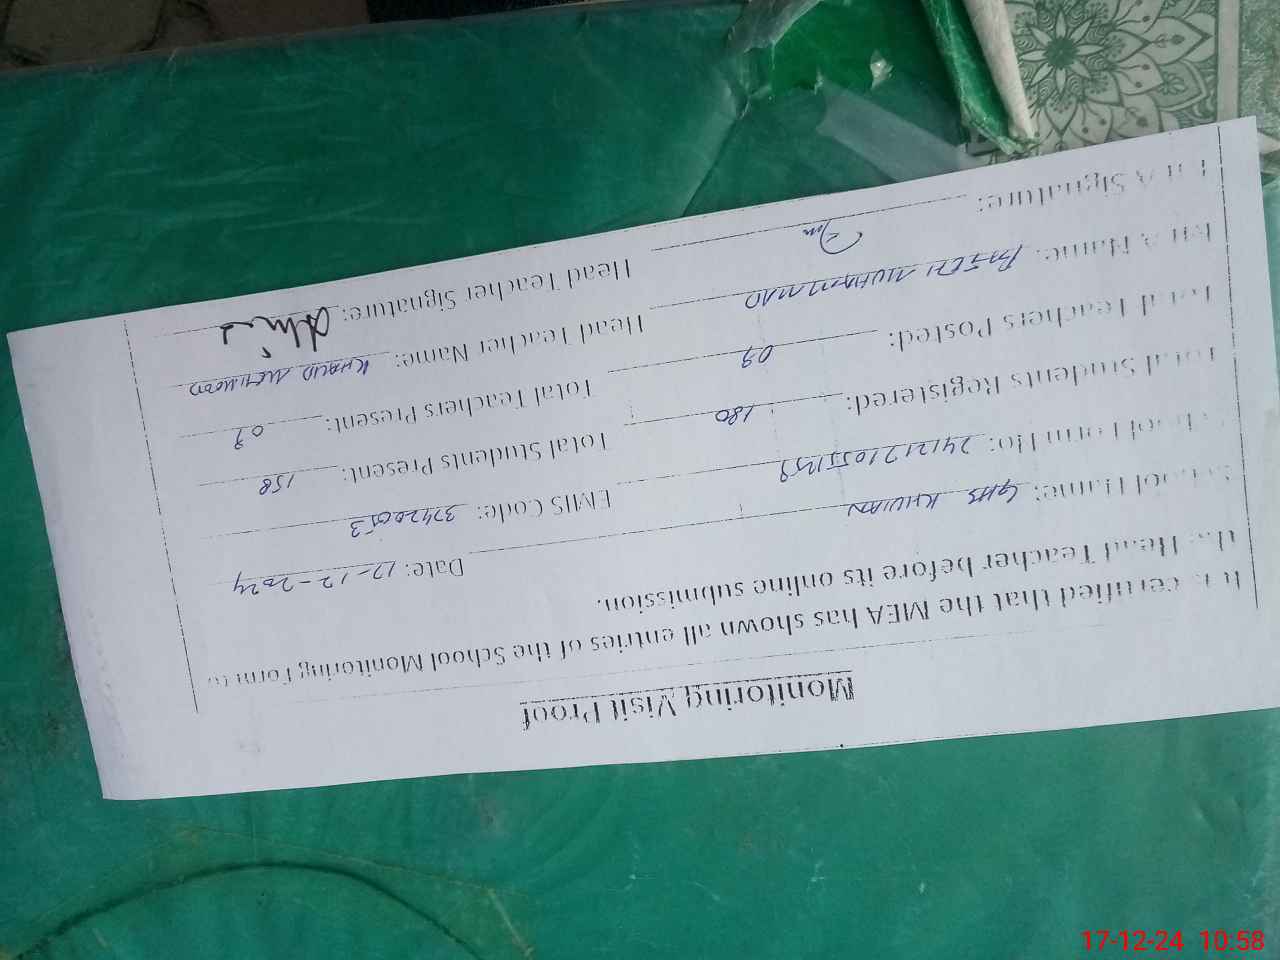 Monitoring Visit Proof
It is certified that the MEA has shown all entries of the School Monitoring Form to
the Head Teacher before its online submission.
Date: 17-12-2024
School Name: GHS KHIVIAN EMIS Code: 37420053
School Form No: Total Students Present: 158
Total Students Registered: 180 Total Teachers Present: 09
Total Teachers Posted: 09 Head Teacher Name: KHALID MEHMOOD
MEA Name: MUHAMMAD Head Teacher Signature:
MEA Signature:
17-12-24 10:58